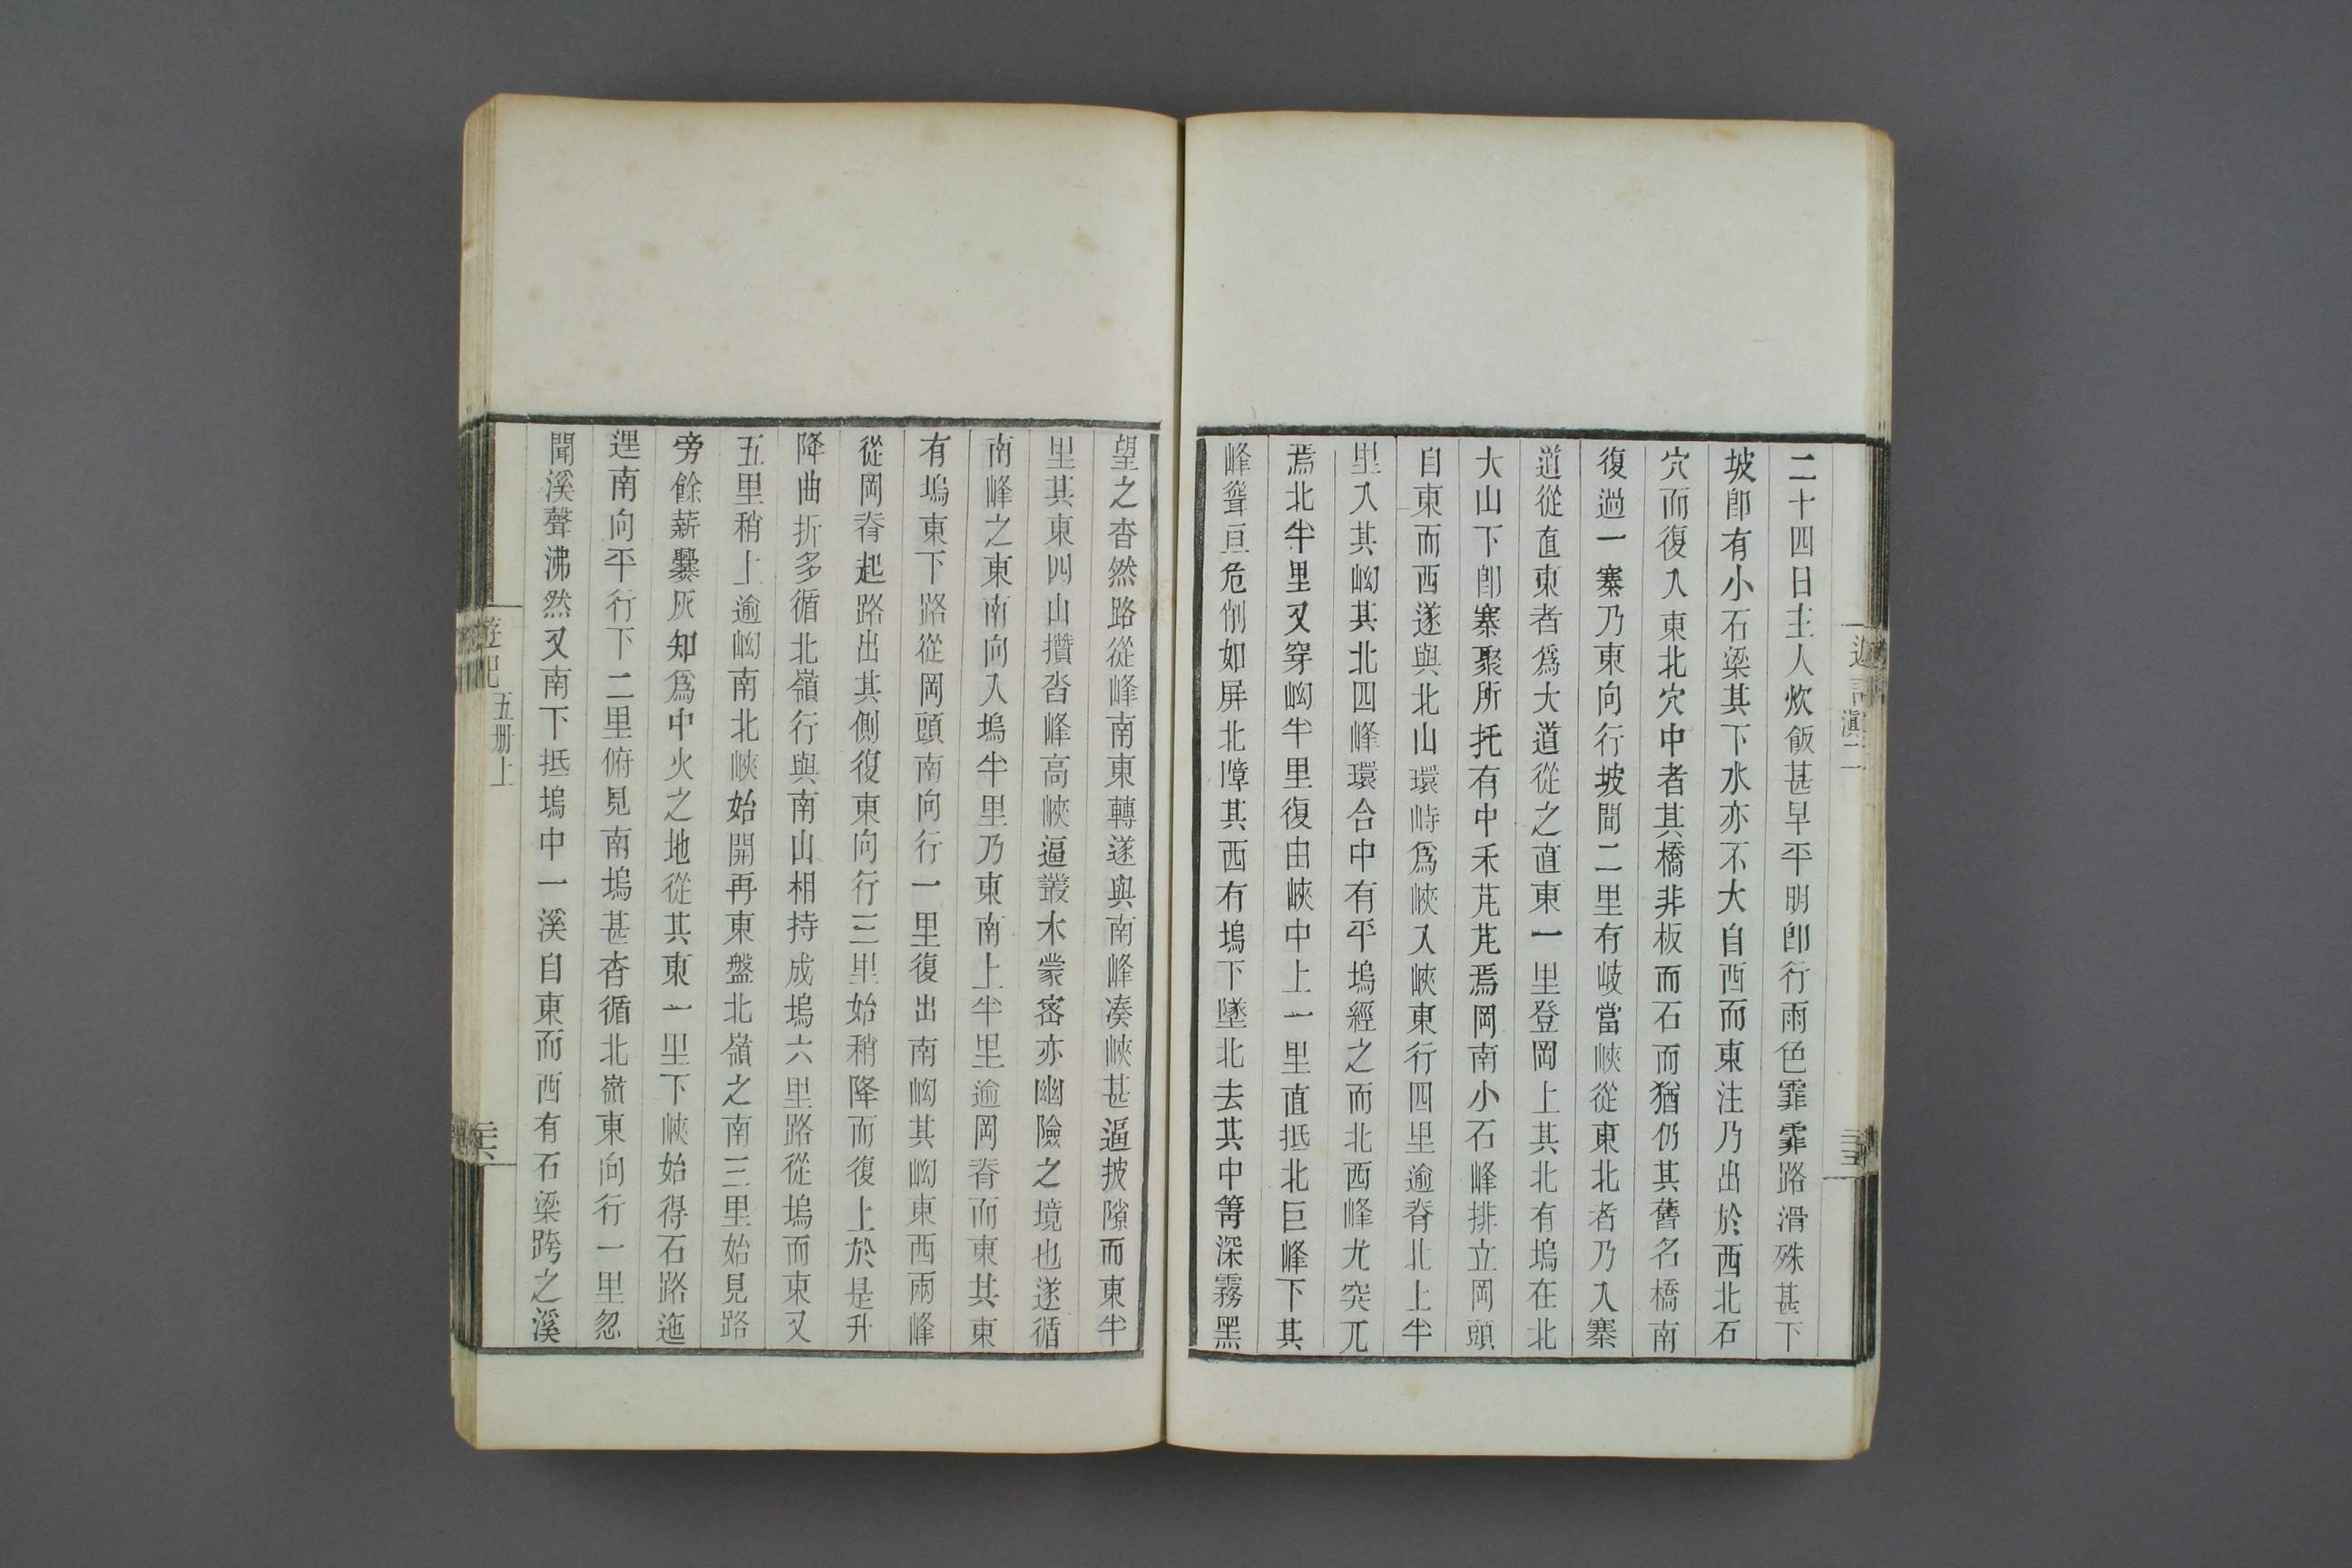 二十四日主人炊飯甚早平明卽行雨色霏霏路滑殊甚下
坡卽有小石梁其下水亦不大自西而東注乃出於西北石
穴而復入東北穴中者其橋非板而石而猶仍其舊名橋南
復過一寨乃東向行坡間二里有岐當峽從東北者乃入寨
道從直東者爲大道從之直東一里登岡上其北有塢在北
大山下卽寨聚所托有中禾芃芃焉岡南小石峰排立岡頭
自東而西遂與北山環峙爲峽入峽東行四里逾脊北上半
里入其岰其北四峰環合中有平塢經之而北西峰尤突兀
焉北半里又穿岰半里復由峽中上一里直抵北巨峰下其
峰聳亘危削如屏北障其西有塢下墜北去其中箐深霧黑
望之杳然路從峰南東轉遂與南峰凑峽甚逼披隙而東半
里其東四山攢沓峰高峽逼叢木蒙密亦幽險之境也遂循
南峰之東南向入塢半里乃東南上半里逾岡脊而東其東
有塢東下路從岡頭南向行一里復出南岰其岰東西兩峰
從岡脊起路出其側復東向行三里始稍降而復上於是升
降曲折多循北嶺行與南山相持成塢六里路從塢而東又
五里稍上逾岰南北峽始開再東盤北嶺之南三里始見路
旁餘薪爨灰知爲中火之地從其東一里下峽始得石路迤
逕南向平行下二里俯見南塢甚杳循北嶺東向行一里忽
聞溪聲沸然又南下抵塢中一溪自東而西有石梁跨之溪
遊記
五册上
滇二